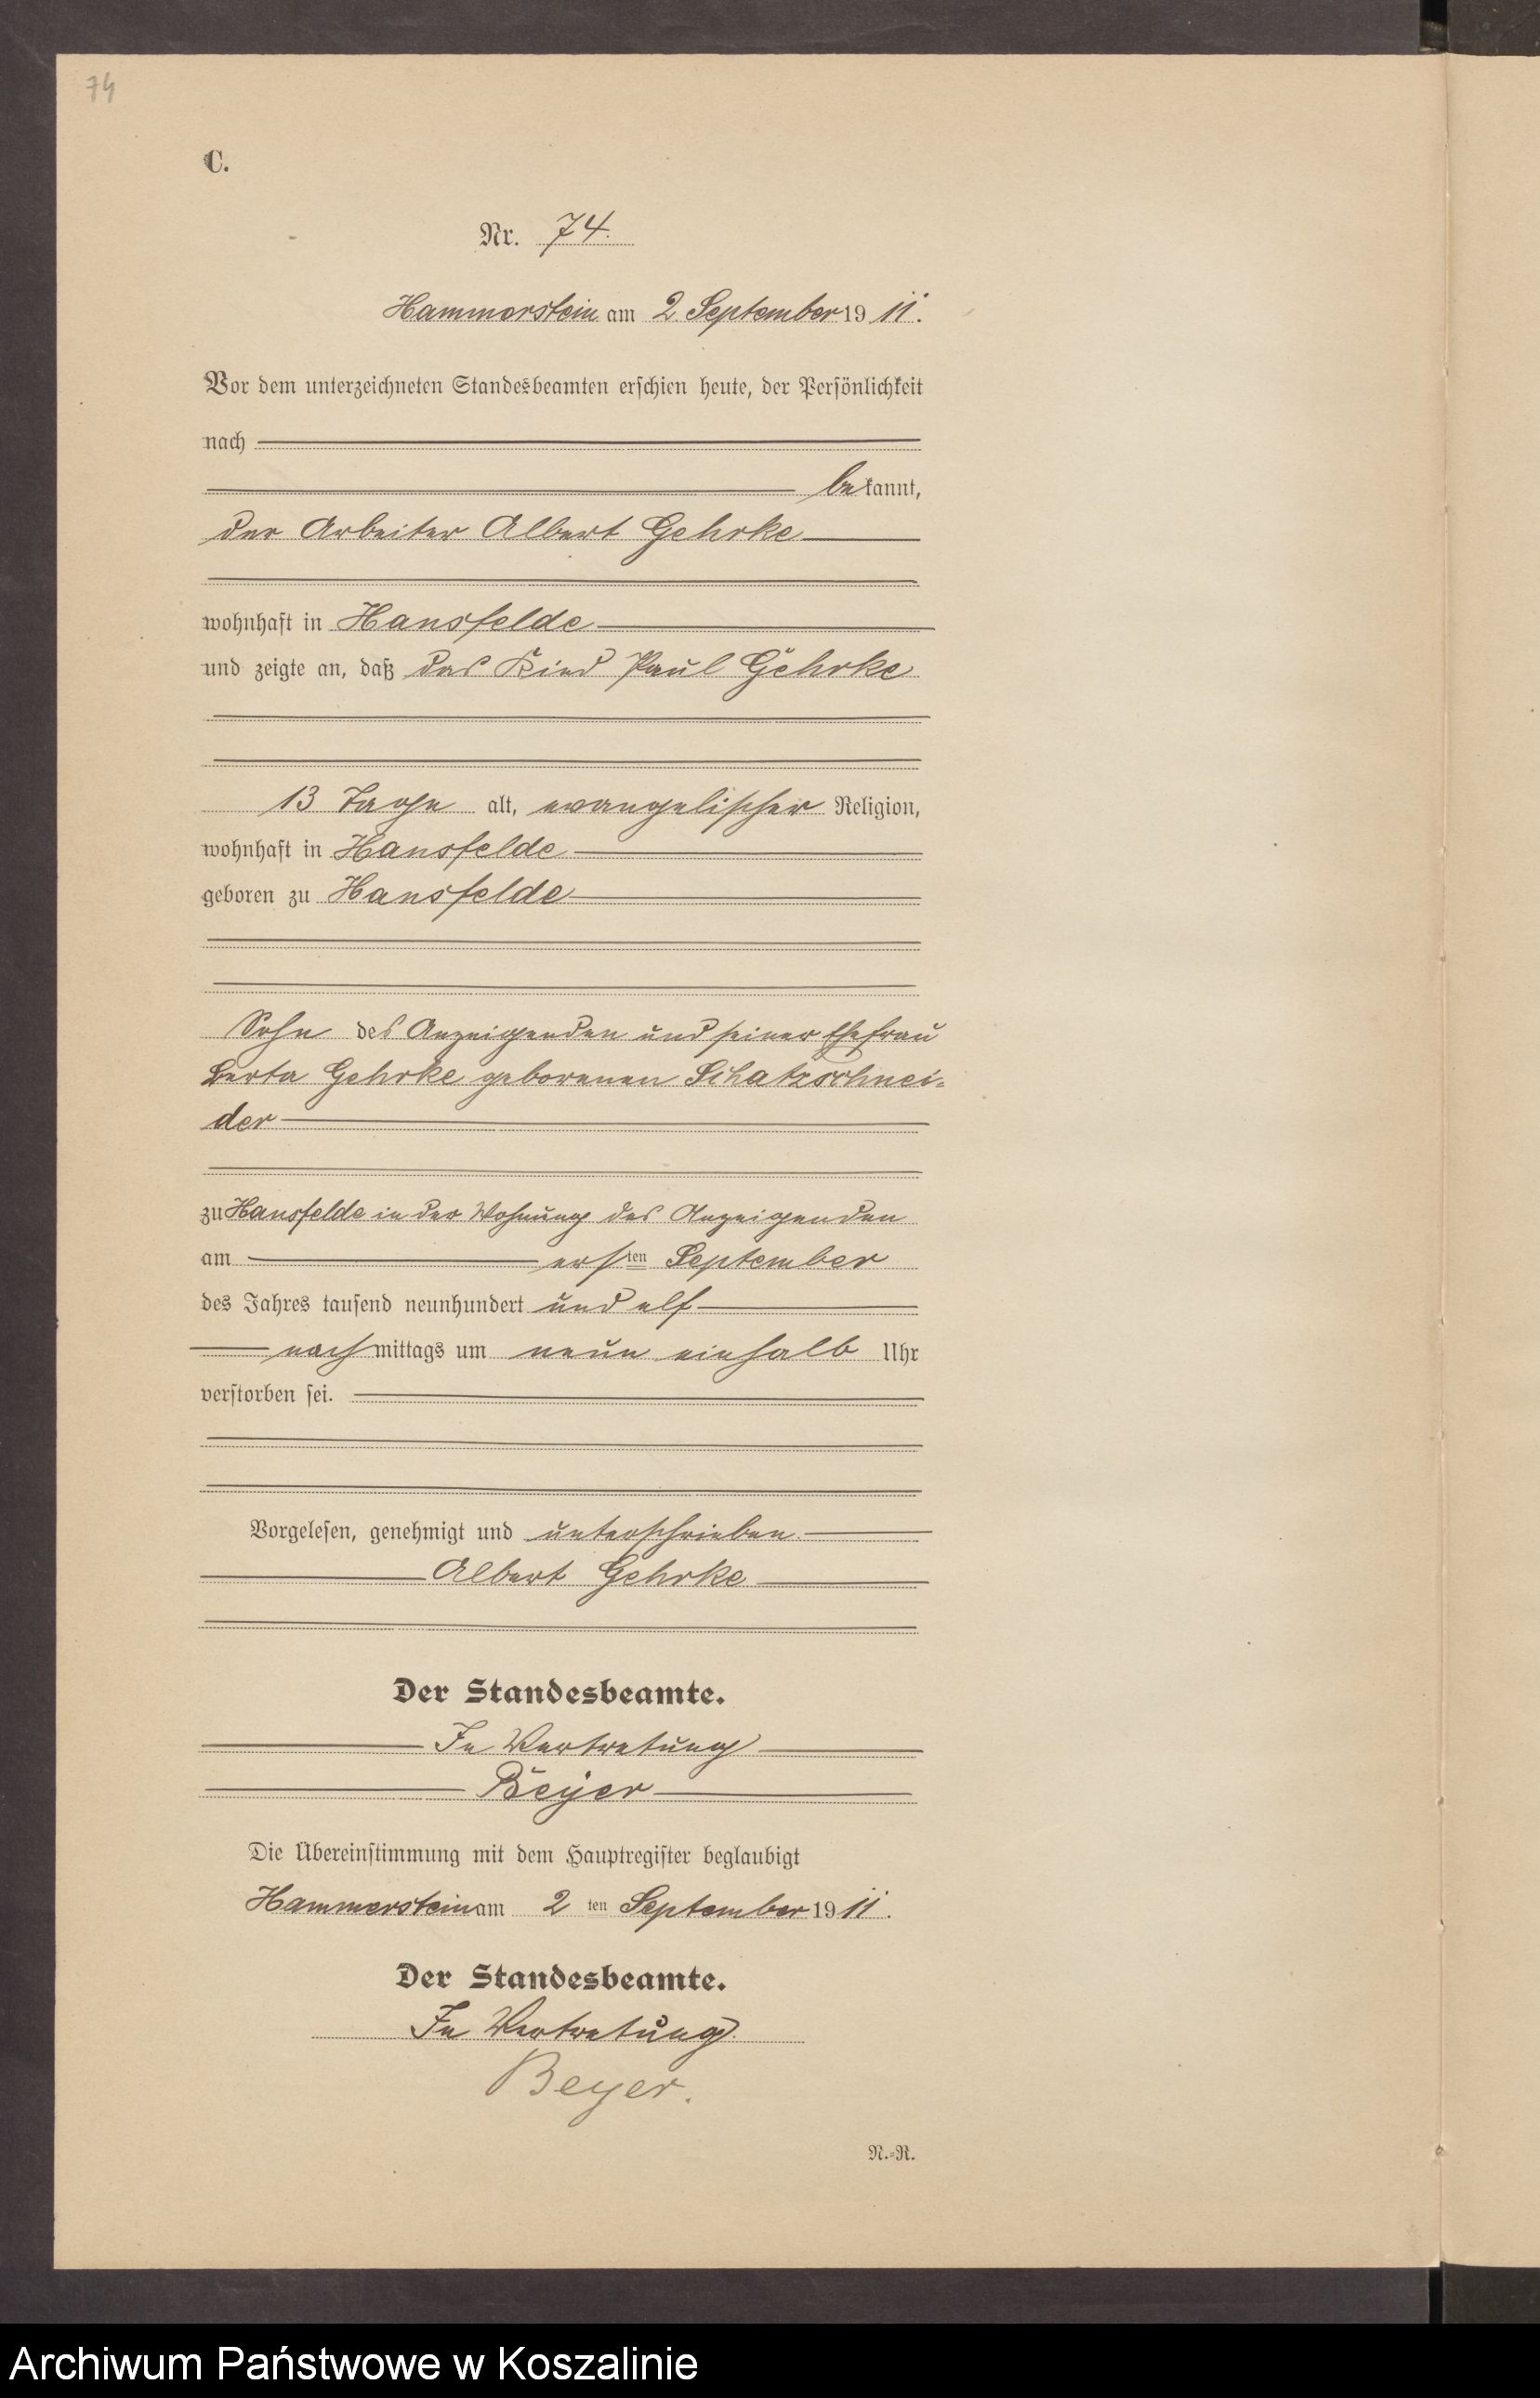 74
C.
Nr. 74.
Hammerstein am 2. September 19 11.
Vor dem unterzeichneten Standesbeamten erschien heute, der Persönlichkeit
nach
bekannt,
der Arbeiter Albert Gehrke
wohnhaft in Hansfelde
und zeigte an, daß das Kind Paul Gehrke
13 Tage alt, evangelischer Religion,
wohnhaft in Hansfelde
geboren zu Hansfelde
Sohn des Anzeigenden und seiner Ehefrau
Berta Gehrke geborenen Schatzschnei-
der
zu Hansfelde in der Wohnung des Anzeigenden
am ersten September
des Jahres tausend neunhundert und elf
nachmittags um neun einhalb Uhr
verstorben sei.
Vorgelesen, genehmigt und unterschrieben.
Albert Gehrke
Der Standesbeamte.
In Vertretung
Beyer
Die Übereinstimmung mit dem Hauptregister beglaubigt
Hammerstein am 2 ten September 19 11.
Der Standesbeamte.
In Vertretung.
Beyer.
N.-R.
Archiwum Państwowe w Koszalinie